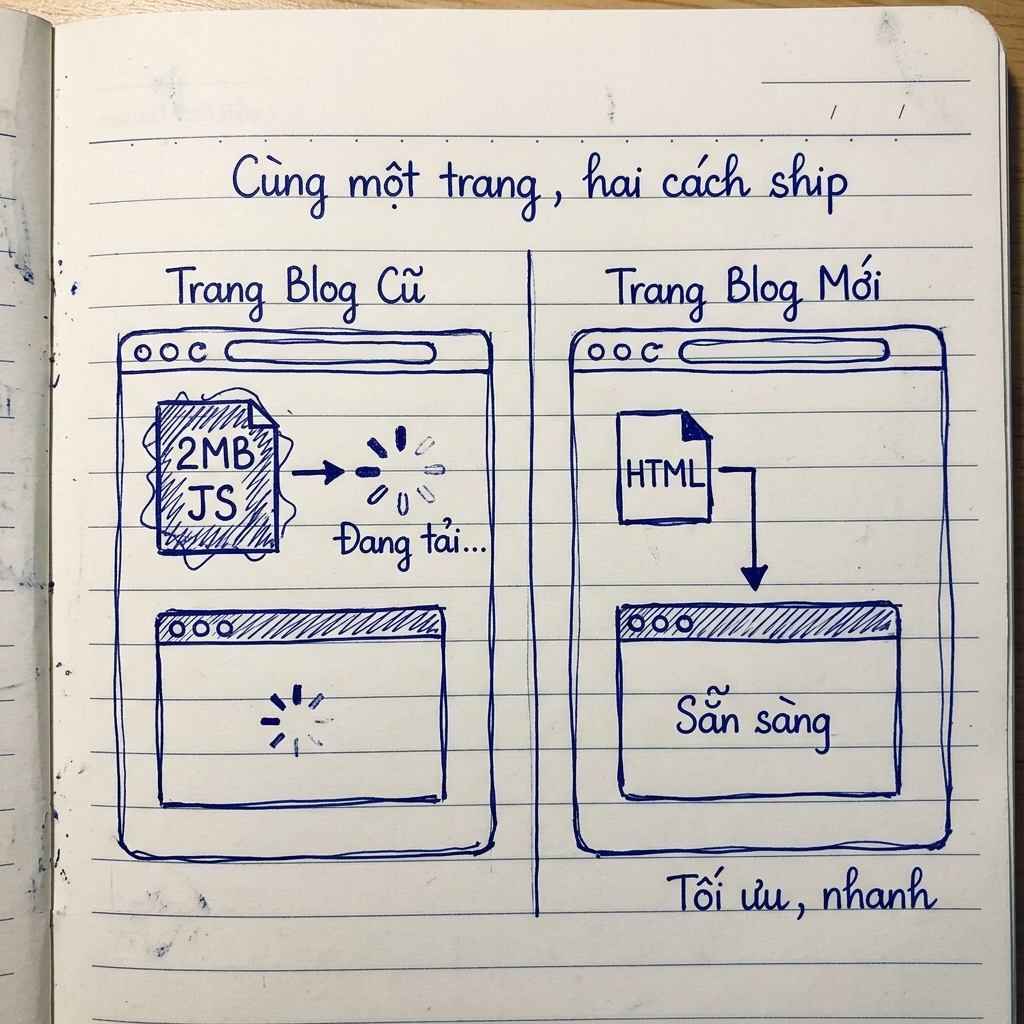 Cùng một trang, hai cách ship
Trang Blog Cũ
2MB
JS
Đang tải...
Trang Blog Mới
HTML
Sẵn sàng
Tối ưu, nhanh